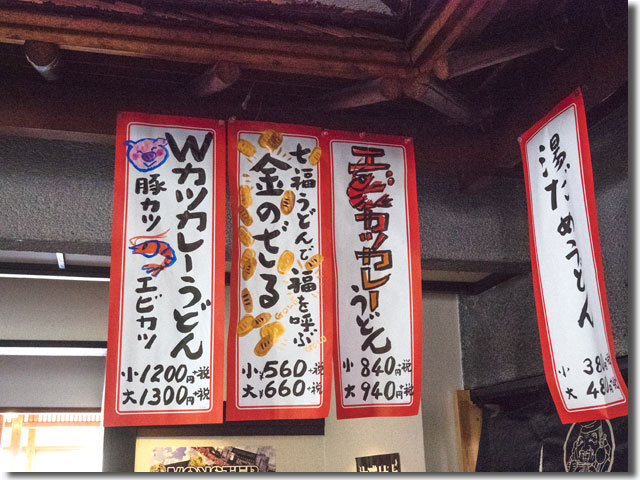 Wカツカレーうどん
豚カツ
エビカツ
小1200円+税
大1300円+税
七福うどんで福を呼ぶ
金のざる
小¥560+税
大¥660+税
エビカツカレーうどん
小 840円+税
大 940円+税
湯だめうどん
小 380
大 480
MONSTER